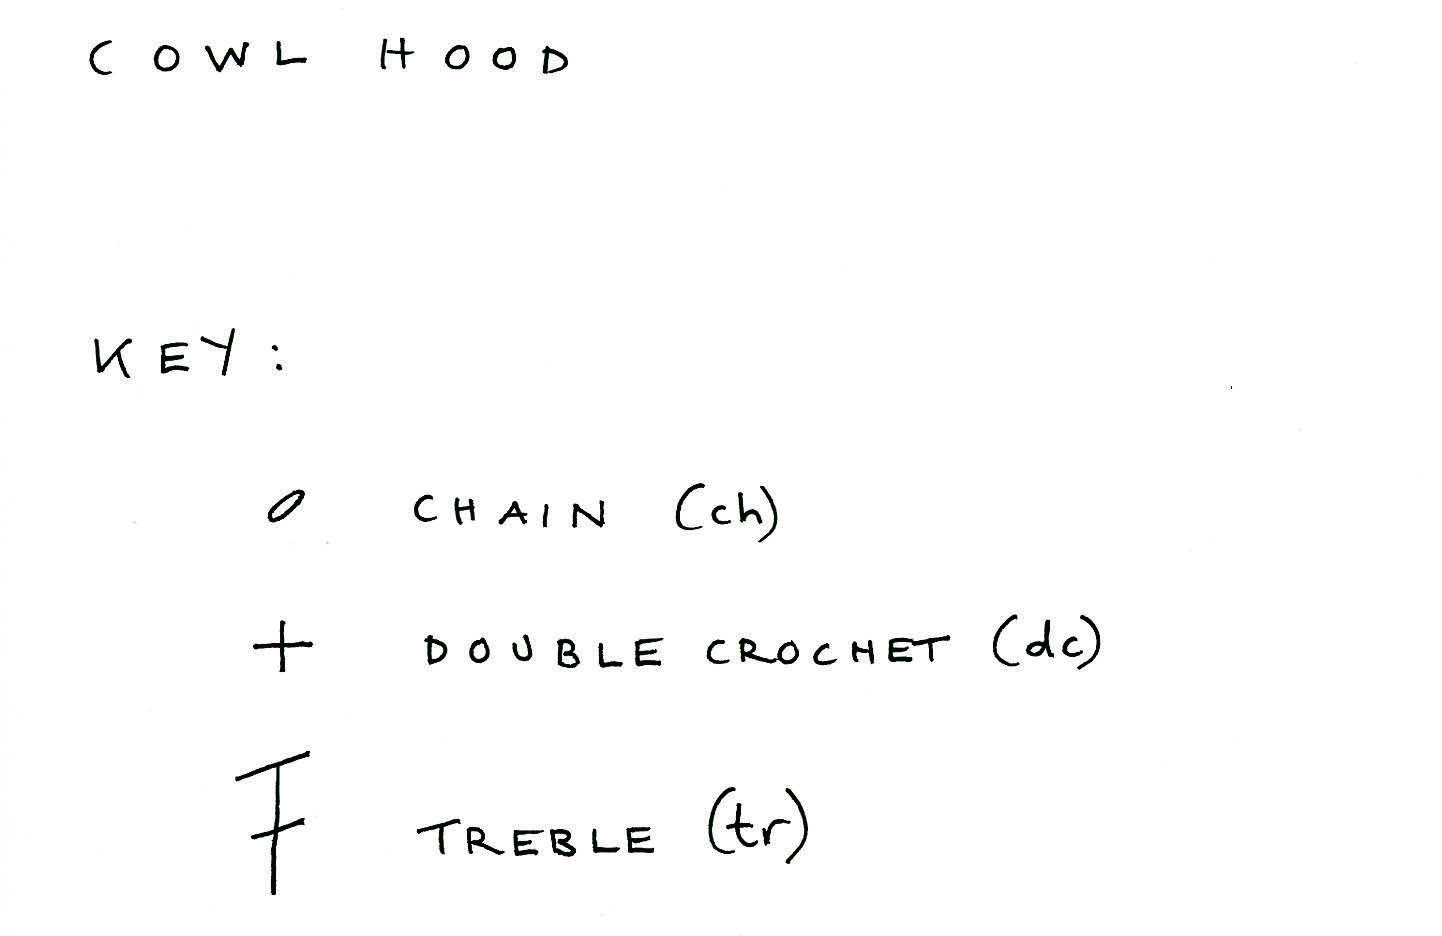 COWL HOOD
KEY:
CHAIN (ch)
DOUBLE CROCHET (dc)
TREBLE (tr)